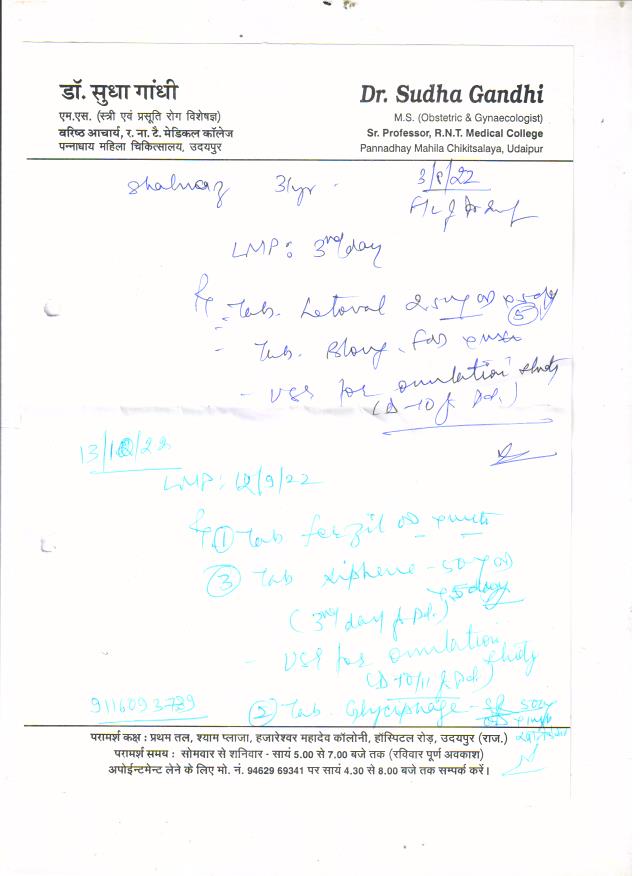 डॉ. सुधा गांधी
एम.एस. (स्त्री एवं प्रसूति रोग विशेषज्ञ)
वरिष्ठ आचार्य, र. ना. टै. मेडिकल कॉलेज
पन्नाधाय महिला चिकित्सालय, उदयपुर
Dr. Sudha Gandhi
M.S. (Obstetric & Gynaecologist)
Sr. Professor, R.N.T. Medical College
Pannadhay Mahila Chikitsalaya, Udaipur
Shalnaz 31yr 3/8/22
LMP: 3rd day
Rx Tab. Letoval 2.5mg OD x 5 day
(5)
- Tab.
- USG for ovulation study
(D-10 of Pd.)
13/10/22
LMP: 12/9/22
Rx (1) Tab OD
(3) Tab Siphene - 50mg OD
x 5 days
(3rd day of Pd.)
- USG for ovulation study
(D-10/11 of Pd.)
9116093789 (2) Tab. Glyciphage - SR 500
परामर्श कक्ष : प्रथम तल, श्याम प्लाजा, हजारेश्वर महादेव कॉलोनी, हॉस्पिटल रोड़, उदयपुर (राज.)
परामर्श समय : सोमवार से शनिवार - सायं 5.00 से 7.00 बजे तक (रविवार पूर्ण अवकाश)
अपोईन्टमेन्ट लेने के लिए मो. नं. 94629 69341 पर सायं 4.30 से 8.00 बजे तक सम्पर्क करें।